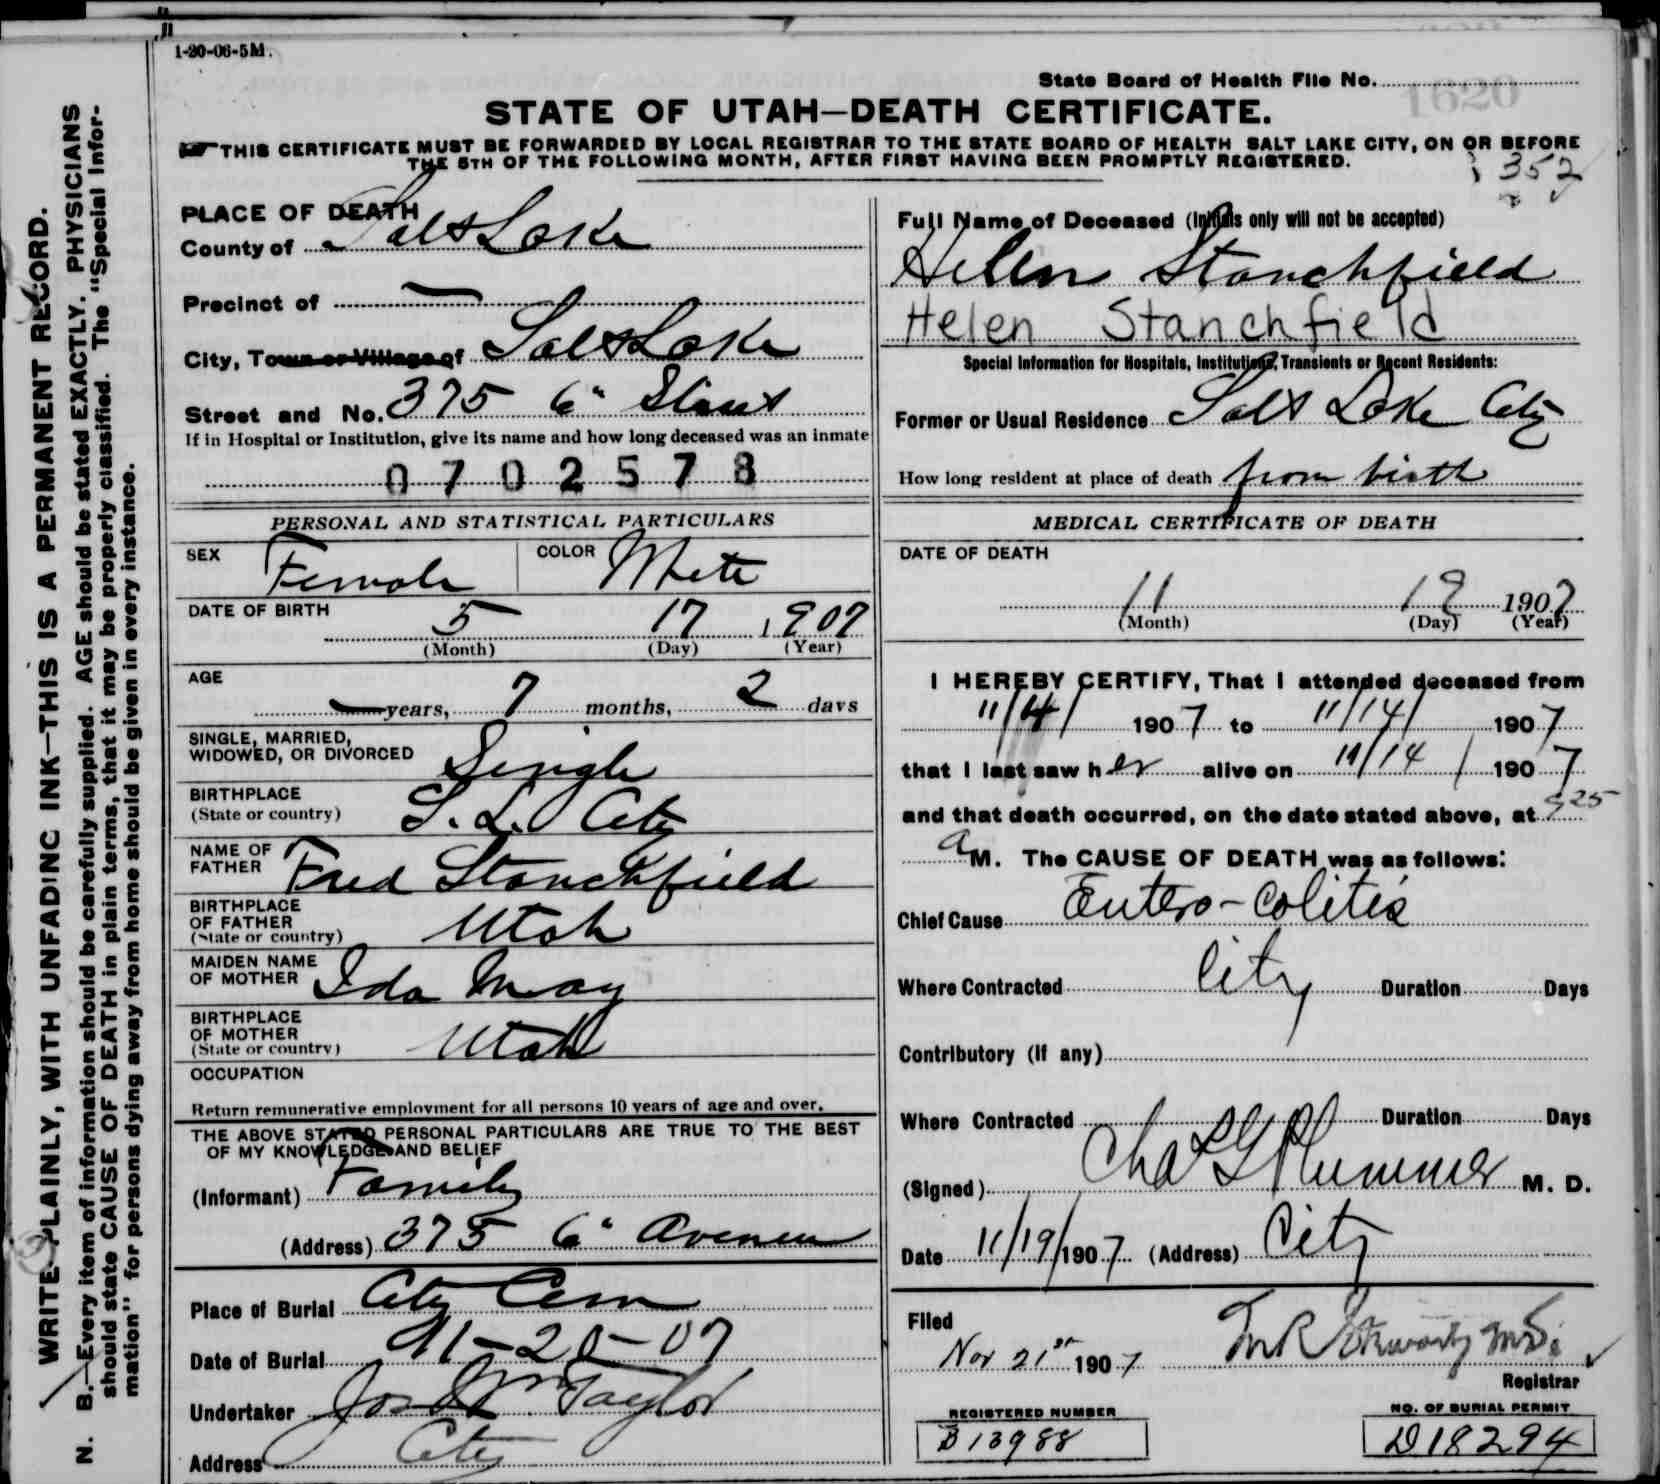 1-20-06-5M.
State Board of Health File No. 1620
STATE OF UTAH—DEATH CERTIFICATE.
THIS CERTIFICATE MUST BE FORWARDED BY LOCAL REGISTRAR TO THE STATE BOARD OF HEALTH SALT LAKE CITY, ON OR BEFORE
THE 5TH OF THE FOLLOWING MONTH, AFTER FIRST HAVING BEEN PROMPTLY REGISTERED.
352
WRITE PLAINLY, WITH UNFADING INK—THIS IS A PERMANENT RECORD.
N. B.—Every item of information should be carefully supplied. AGE should be stated EXACTLY. PHYSICIANS
should state CAUSE OF DEATH in plain terms, that it may be properly classified. The "Special Infor-
mation" for persons dying away from home should be given in every instance.
PLACE OF DEATH
County of Salt Lake
Precinct of —
City, Town or Village of Salt Lake
Street and No. 375 6"
If in Hospital or Institution, give its name and how long deceased was an inmate
0702578
PERSONAL AND STATISTICAL PARTICULARS
SEX Female COLOR White
DATE OF BIRTH
5 17 1907
(Month) (Day) (Year)
AGE
— years, 7 months, 2 days
SINGLE, MARRIED,
WIDOWED, OR DIVORCED Single
BIRTHPLACE
(State or country) S. L. City
NAME OF
FATHER Fred Stanchfield
BIRTHPLACE
OF FATHER
(State or country) Utah
MAIDEN NAME
OF MOTHER Ida May
BIRTHPLACE
OF MOTHER
(State or country) Utah
OCCUPATION
Return remunerative employment for all persons 10 years of age and over.
THE ABOVE STATED PERSONAL PARTICULARS ARE TRUE TO THE BEST
OF MY KNOWLEDGE AND BELIEF
(Informant) Family
(Address) 375 6" Avenue
Place of Burial City Cem
Date of Burial 11-20-07
Undertaker Jos Wm Taylor
Address City
Full Name of Deceased (Initials only will not be accepted)
Helen Stanchfield
Helen Stanchfield
Special Information for Hospitals, Institutions, Transients or Recent Residents:
Former or Usual Residence Salt Lake City
How long resident at place of death from birth
MEDICAL CERTIFICATE OF DEATH
DATE OF DEATH
11 19 1907
(Month) (Day) (Year)
I HEREBY CERTIFY, That I attended deceased from
11/4/ 1907 to 11/14/ 1907
that I last saw her alive on 11/14/ 1907
and that death occurred, on the date stated above, at 525
a M. The CAUSE OF DEATH was as follows:
Chief Cause Entero-colitis
Where Contracted City Duration Days
Contributory (if any)
Where Contracted Duration Days
(Signed) Chas G Plummer M. D.
Date 11/19/1907 (Address) City
Filed
Nov 21st 1907
Registrar
REGISTERED NUMBER
B13988
NO. OF BURIAL PERMIT
D18294